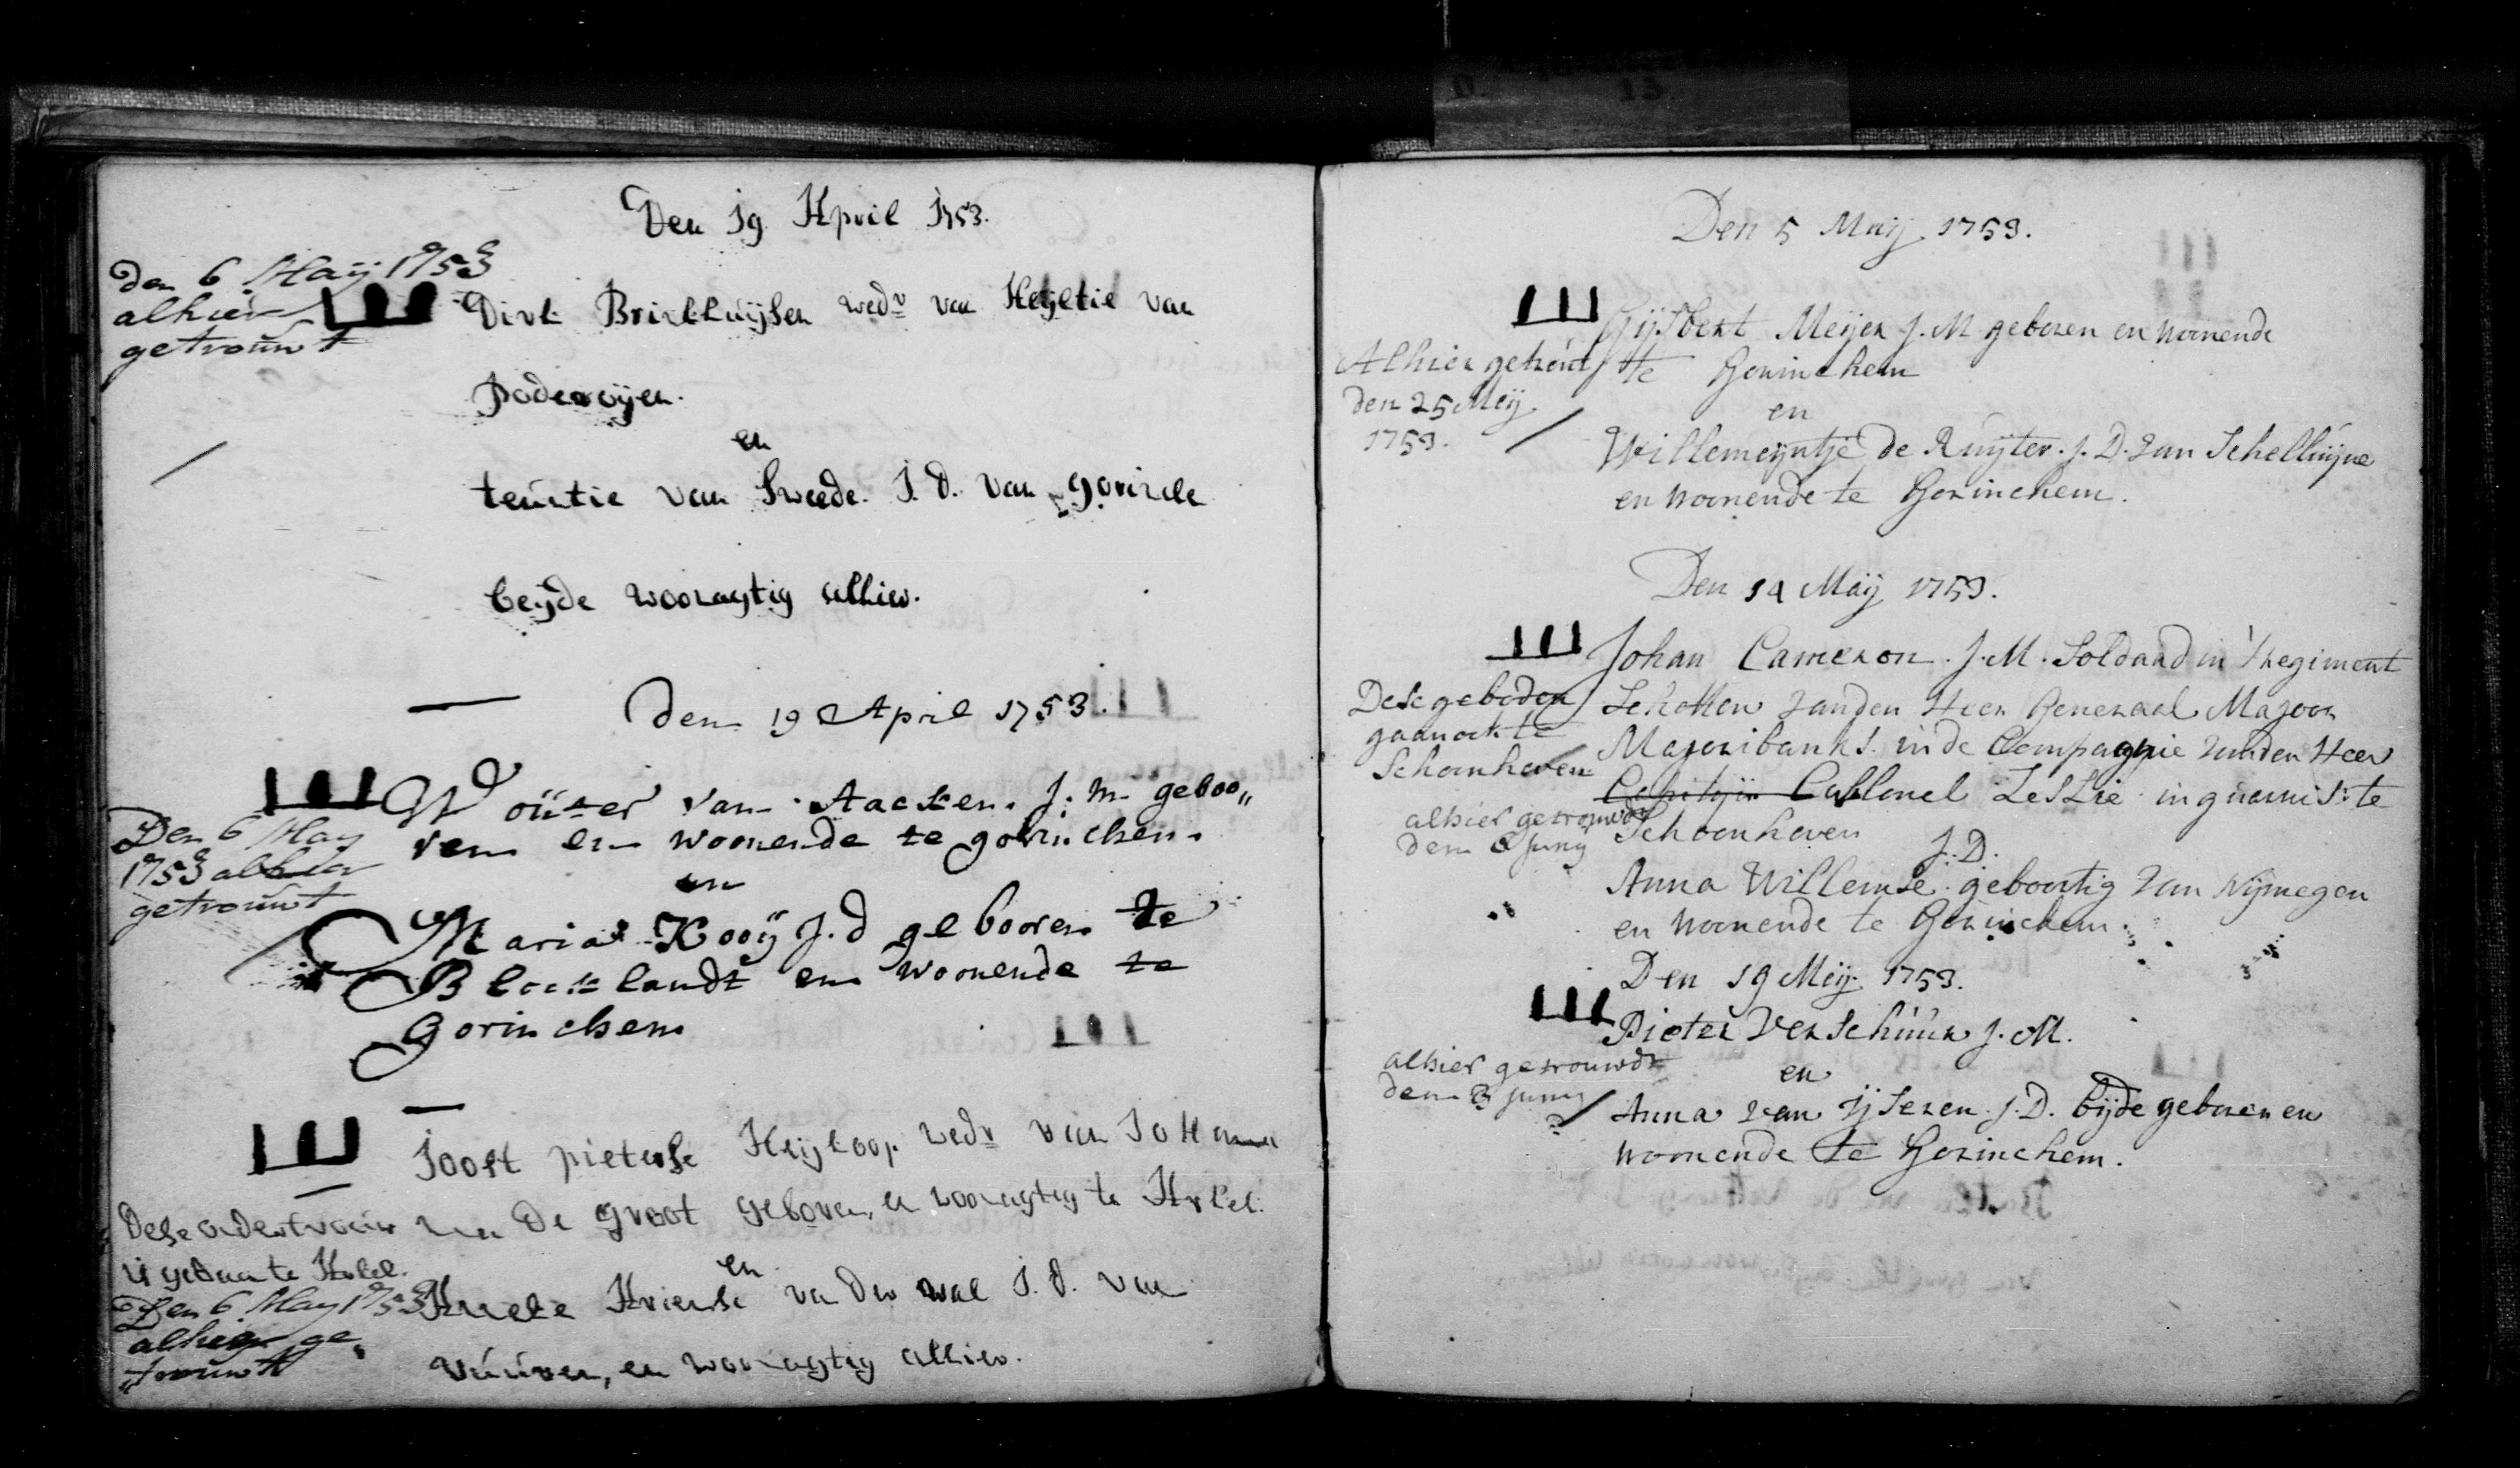 Den 19 April 1753.
den 6 Maÿ 1753
alhier
getrouwt
Dirk Brinkhuijsen wedr van Heijltie van
poderoijen.
en
teuntie van Sweede. J. d. van gorichem
beijde woonagtig alhier.
Den 19 April 1753.
Den 6 May
1753 alhier
getrouwt
Wouter van Aacken. J: m geboo„
ren en woonende te gorinchem
en
Maria Kooÿ J. d gebooren te
Blocklandt en woonende te
Gorinchem
Joost pieterse Heijkoop wedr van Johanna
van De groot geboren, en woonagtig te Arkel.
Dese ondertrouw
is gedaan te Arkel.
Den 6 May 1753
alhier ge„
„trouwt
en
Ariense van der wal J. d. van
vuuren, en woonagtig alhier.
13
Den 5 Maij 1753.
Gijsbert Meijer J. M. geboren en woonende
te Gorinchem
en
Willemeijntje de Ruijter. J. D. van Schelluijne
en woonende te Gorinchem.
Alhier getrout
den 25 Meij
1753.
Den 14 Maij 1753.
Johan Cameron. J. M. Soldaad in 't regiment
Schotten vanden Heer Generaal Majoor
Majoribanks. in de Compagnie vanden Heer
Capitijn Collonel Leslie in guarnis: te
Schoonhoven
J. D.
Anna Willemse geboortig van Nijmegen
en woonende te Gorinchem.
Dese geboden
gaan ook te
Schoonhoven
alhier getrouwdt
den 3 Juny
Den 19 Meij 1753.
Pieter Verschuur J. M.
en
Anna van Ijseren. J. D. bijde geboren en
woonende te Gorinchem.
alhier getrouwdt
den 3 Juny